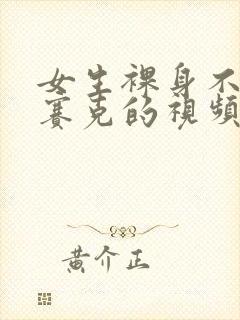 女生裸身不
賽克的視頻
黄介正